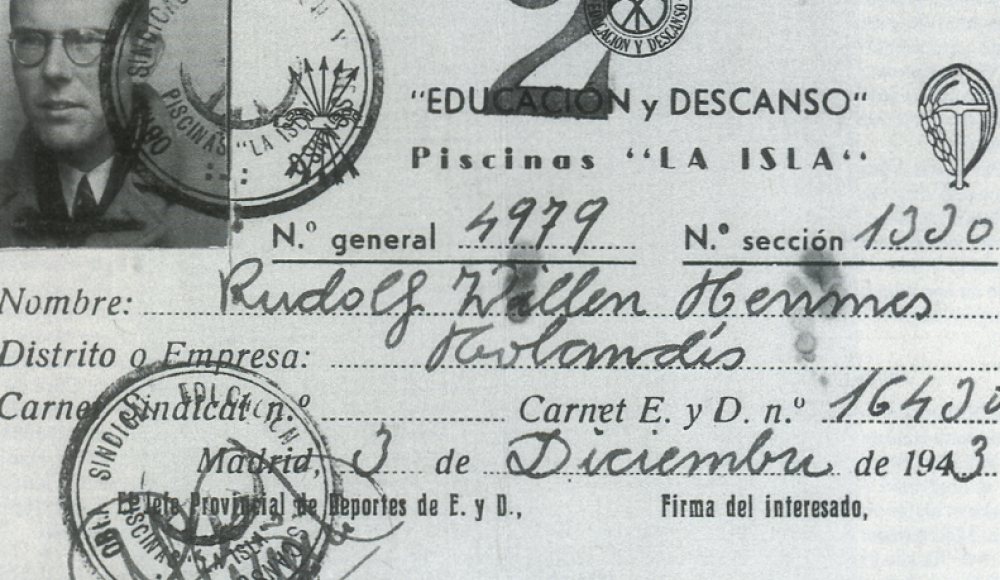 2
EDUCACION Y DESCANSO
"EDUCACION y DESCANSO"
Piscinas "LA ISLA"
PISCINAS "LA ISLA"
N.º general 4979 N.º sección 1330
Nombre: Rudolf Willen Hemmes
Distrito o Empresa: Holandés
Carnet Sindical n.º Carnet E. y D. n.º 16430
Madrid, 3 de Diciembre de 1943
El Jefe Provincial de Deportes de E. y D., Firma del interesado,
PISCINAS "LA ISLA"